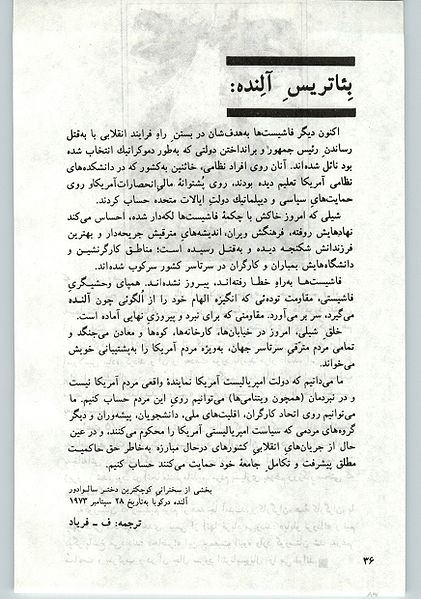 بِئاتریسِ آلِنده:
اکنون دیگر فاشیست‌ها به‌هدف‌شان در بستن راهِ فرایند انقلابی با به‌قتل
رساندن رئیس جمهور و برانداختن دولتی که به‌طور دموکراتیك انتخاب شده
بود نائل شده‌اند. آنان روی افراد نظامی، خائنین به‌کشور که در دانشکده‌های
نظامی آمریکا تعلیم دیده بودند، روی پُشتوانهٔ مالیِ‌انحصارات‌آمریکاو روی
حمایت‌هایِ سیاسی و دیپلماتیك دولتِ ایالات متحده حساب کردند.
شیلی که امروز خاکش با چکمهٔ فاشیست‌ها لکه‌دار شده، احساس می‌کند
نهادهایش روفته، فرهنگش ویران، اندیشه‌های مترقیش جریحه‌دار و بهترین
فرزندانش شکنجه دیده و به‌قتل رسیده است؛ مناطق کارگرنشین و
دانشگاه‌هایش بمباران و کارگران در سرتاسر کشور سرکوب شده‌اند.
فاشیست‌ها به‌راهِ خطا رفته‌اند، پیروز نشده‌اند. همپای وحشیگریِ
فاشیستی، مقاومت توده‌ئی که انگیزه الهام خود را از الگوئی چون آلنده
می‌گیرد، سر بر می‌آورد. مقاومتی که برای نبرد و پیروزیِ نهایی آماده است.
خلقِ شیلی، امروز در خیابان‌ها، کارخانه‌ها، کوه‌ها و معادن می‌جنگد و
تمامی مردم مترقیِ سرتاسر جهان، به‌ویژه مردم آمریکا را به‌پشتیبانی خویش
می‌خواند.
ما می‌دانیم که دولت امپریالیست آمریکا نمایندهٔ واقعی مردم آمریکا نیست
و در نبردمان (همچون ویتنامی‌ها) می‌توانیم رویِ این مردم حساب کنیم. ما
می‌توانیم روی اتحاد کارگران، اقلیت‌های ملی، دانشجویان، پیشه‌وران و دیگر
گروه‌های مردمی که سیاست امپریالیستی آمریکا را محکوم می‌کنند، و در عین
حال از جریان‌های انقلابیِ کشورهای درحال مبارزه به‌خاطر حق حاکمیت
مطلق پیشرفت و تکاملِ جامعهٔ خود حمایت می‌کنند حساب کنیم.
بخشی از سخنرانی کوچکترین دختر سالوادور
آلنده درکوبا به‌تاریخ ۲۸ سپتامبر ۱۹۷۳
ترجمه: ف ـ فریاد
۳۶